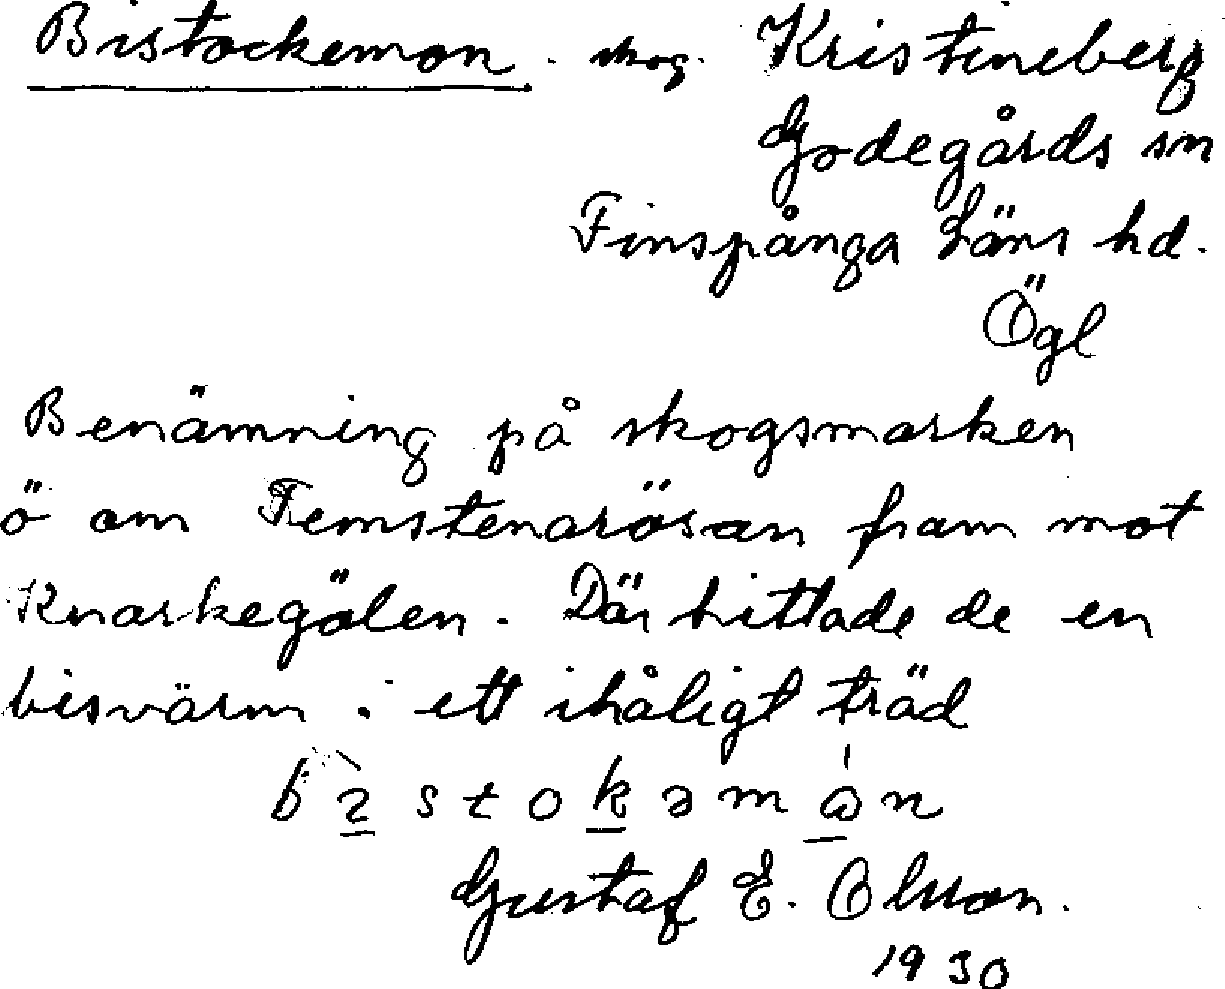 Bistockemon. skog. Kristineberg
Godegårds sn
Finspånga Läns hd.
Ögl
Benämning på skogsmarken
ö om Femstenarösan fram mot
Knarkegölen. Där hittade de en
bisvärm i ett ihåligt träd
Gustaf E. Olsson.
1930